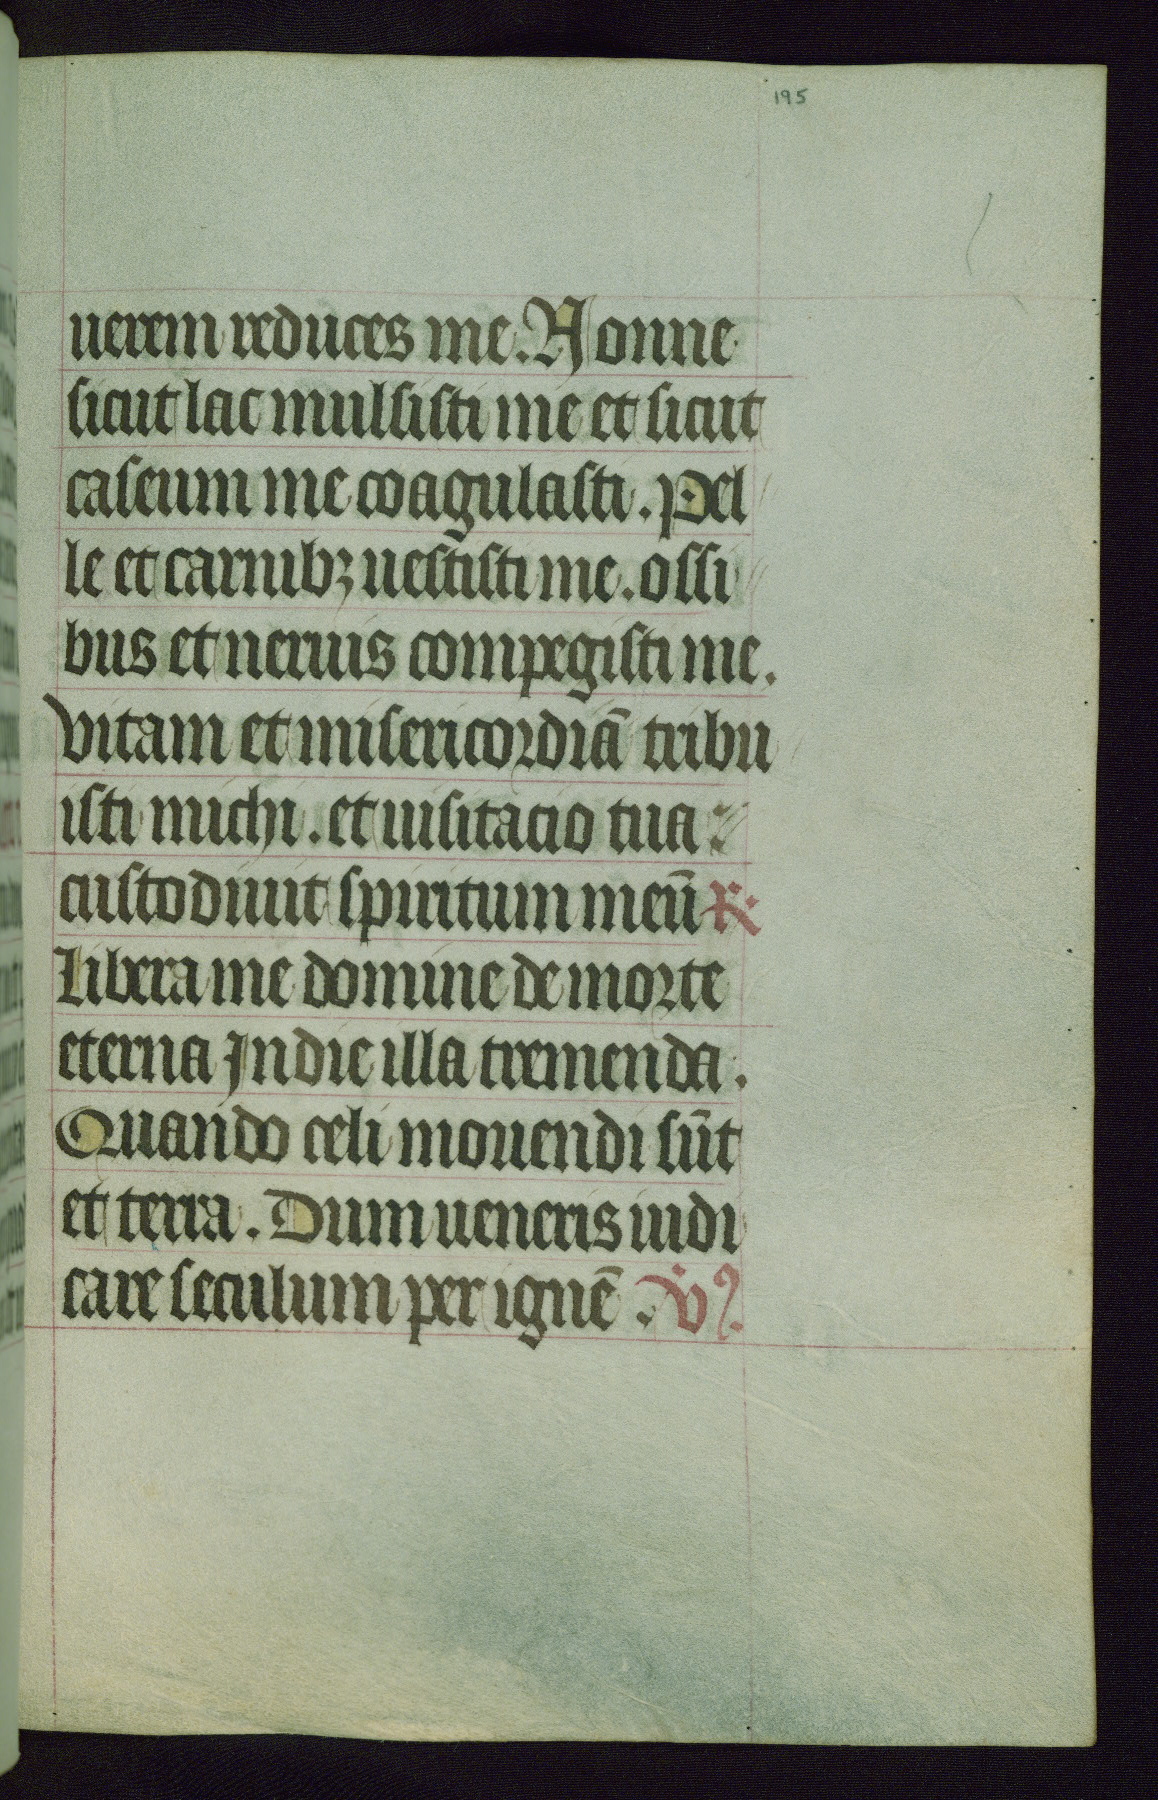 195
uerem reduces me. Nonne
sicut lac mulsisti me et sicut
caseum me coagulasti. Pel
le et carnibꝫ uestisti me. ossi
bus et neruis compegisti me.
Vitam et misericordiā tribu
isti michi. et uisitacio tua
custodiuit spiritum meū ℟.
Libera me domine de morte
eterna In die illa tremenda.
Quando celi mouendi sūt
et terra. Dum ueneris iudi
care seculum per ignē. V̇.